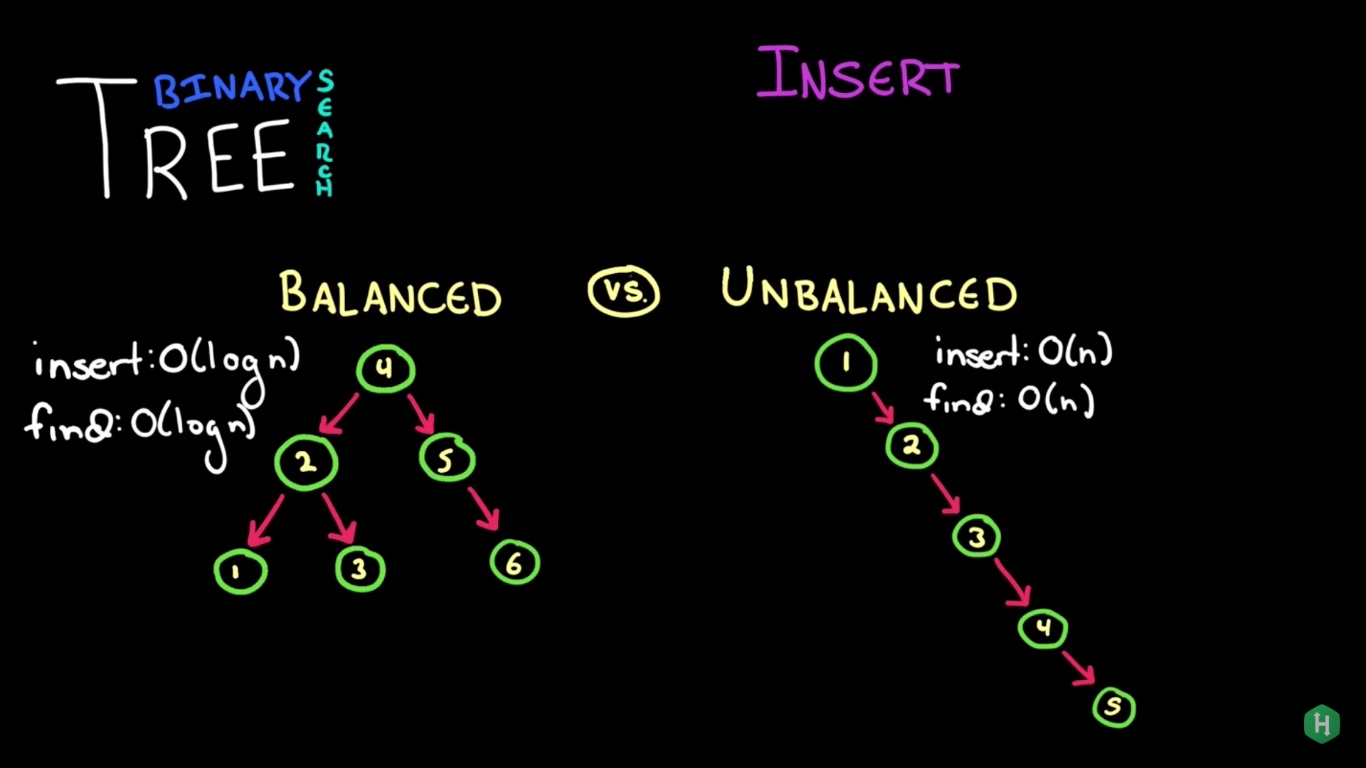 BINARY
TREE
SEARCH
INSERT
BALANCED
VS.
UNBALANCED
insert: O(log n)
find: O(log n)
4
2
5
1
3
6
insert: O(n)
find: O(n)
1
2
3
4
5
H